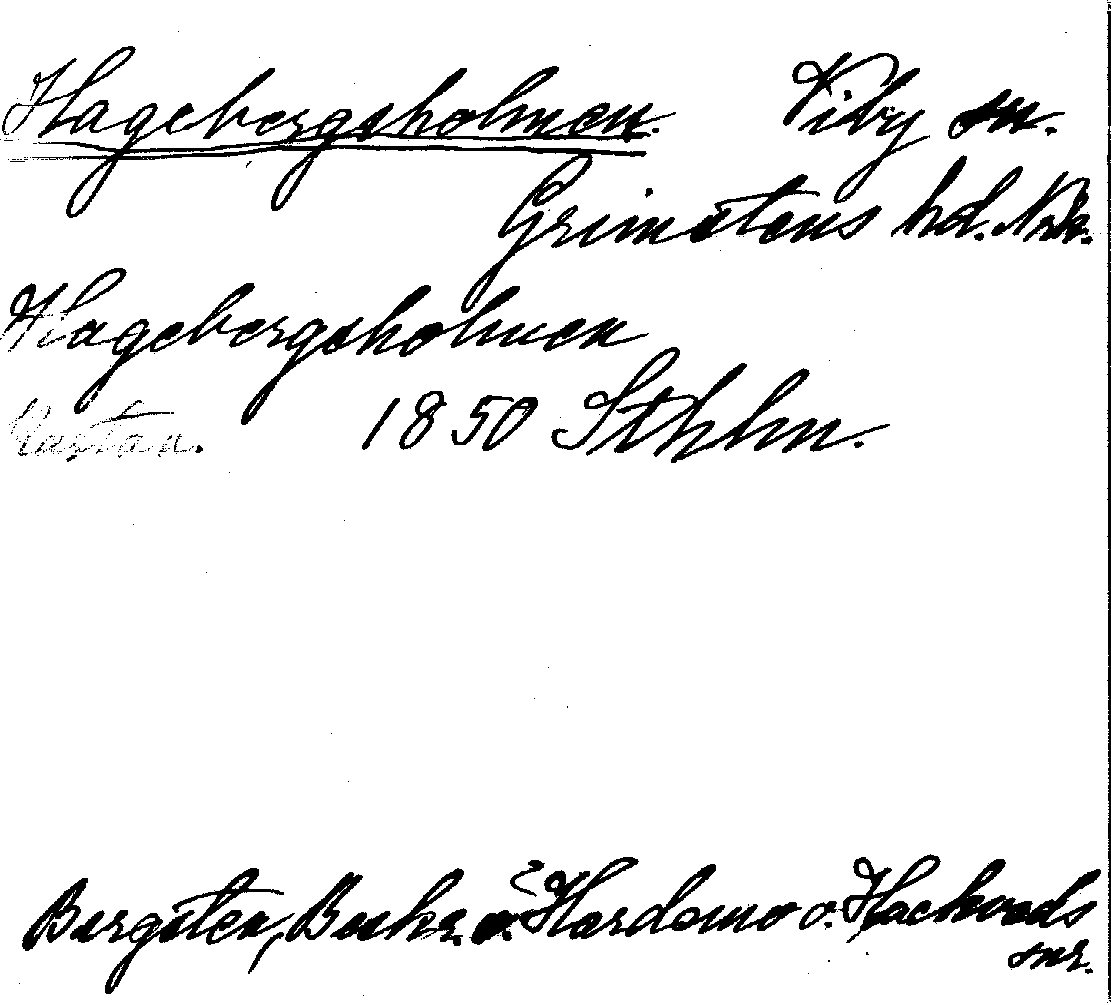 Hagebergsholmen. Viby sn.
Grimstens hd. Nrk.
Hagebergsholmen
1850 Sthlm.
Bergsten, Beskr. ö. Hardemo o. Hackvads
snr.